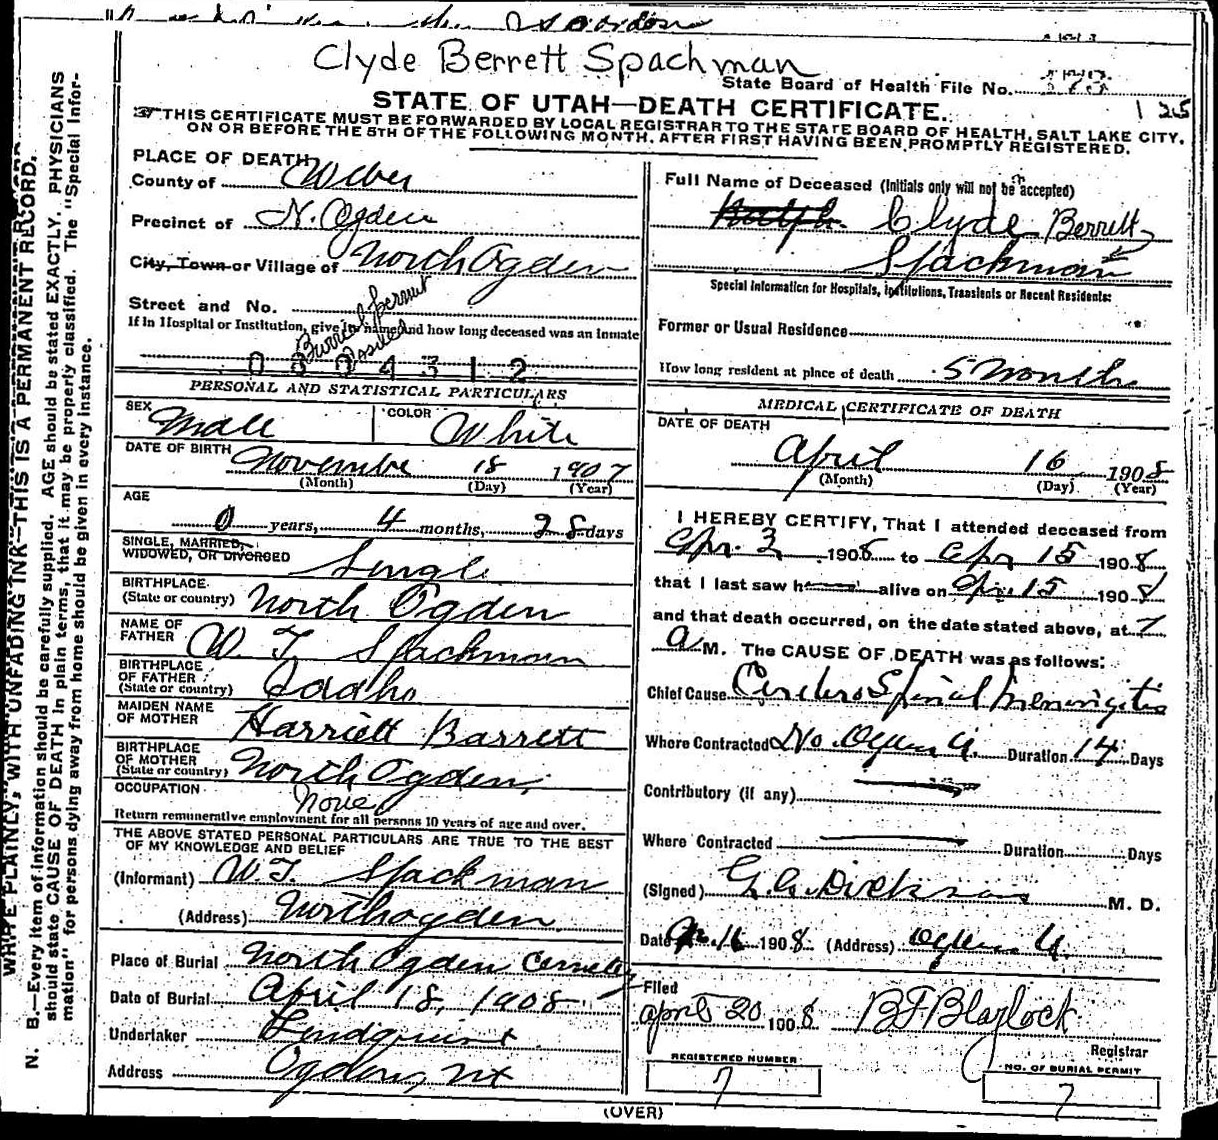 Clyde Berrett Spachman
State Board of Health File No.
STATE OF UTAH—DEATH CERTIFICATE.
1 25
THIS CERTIFICATE MUST BE FORWARDED BY LOCAL REGISTRAR TO THE STATE BOARD OF HEALTH, SALT LAKE CITY,
ON OR BEFORE THE 5TH OF THE FOLLOWING MONTH, AFTER FIRST HAVING BEEN PROMPTLY REGISTERED.
PLACE OF DEATH
County of Weber
Precinct of N. Ogden
City, Town or Village of North Ogden
Street and No.
If in Hospital or Institution, give its name and how long deceased was an inmate
Burrial permit
0804312
PERSONAL AND STATISTICAL PARTICULARS
SEX Male COLOR White
DATE OF BIRTH November 18 1907
(Month) (Day) (Year)
AGE
0 years, 4 months, 28 days
SINGLE, MARRIED,
WIDOWED, OR DIVORCED Single
BIRTHPLACE
(State or country) North Ogden
NAME OF
FATHER W. T. Spackman
BIRTHPLACE
OF FATHER
(State or country) Idaho
MAIDEN NAME
OF MOTHER Harriett Barrett
BIRTHPLACE
OF MOTHER
(State or country) North Ogden,
OCCUPATION None
Return remunerative employment for all persons 10 years of age and over.
THE ABOVE STATED PERSONAL PARTICULARS ARE TRUE TO THE BEST
OF MY KNOWLEDGE AND BELIEF
(Informant) W. T. Spackman
(Address) North ogden
Place of Burial North Ogden Cemetery
Date of Burial April 18, 1908
Undertaker Lindquist
Address Ogden, Ut
Full Name of Deceased (Initials only will not be accepted)
Ralph. Clyde Berrett
Spackman
Special Information for Hospitals, Institutions, Transients or Recent Residents:
Former or Usual Residence
How long resident at place of death 5 Months
MEDICAL CERTIFICATE OF DEATH
DATE OF DEATH
April 16 1908
(Month) (Day) (Year)
I HEREBY CERTIFY, That I attended deceased from
Apr. 3 1908 to Apr 15 1908
that I last saw h alive on Apr. 15 1908
and that death occurred, on the date stated above, at 7
a M. The CAUSE OF DEATH was as follows:
Chief Cause Cerebro Spinal Meningitis
Where Contracted No. Ogden U. Duration 14 Days
Contributory (if any)
Where Contracted Duration Days
(Signed) G. A. Dickson M. D.
Date Apr. 16 1908 (Address) Ogden U.
Filed
April 20 1908 B F Blaylock
Registrar
REGISTERED NUMBER
7
NO. OF BURIAL PERMIT
7
(OVER)
WRITE PLAINLY, WITH UNFADING INK—THIS IS A PERMANENT RECORD.
N. B.—Every item of information should be carefully supplied. AGE should be stated EXACTLY. PHYSICIANS
should state CAUSE OF DEATH in plain terms, that it may be properly classified. The "Special Infor-
mation" for persons dying away from home should be given in every instance.